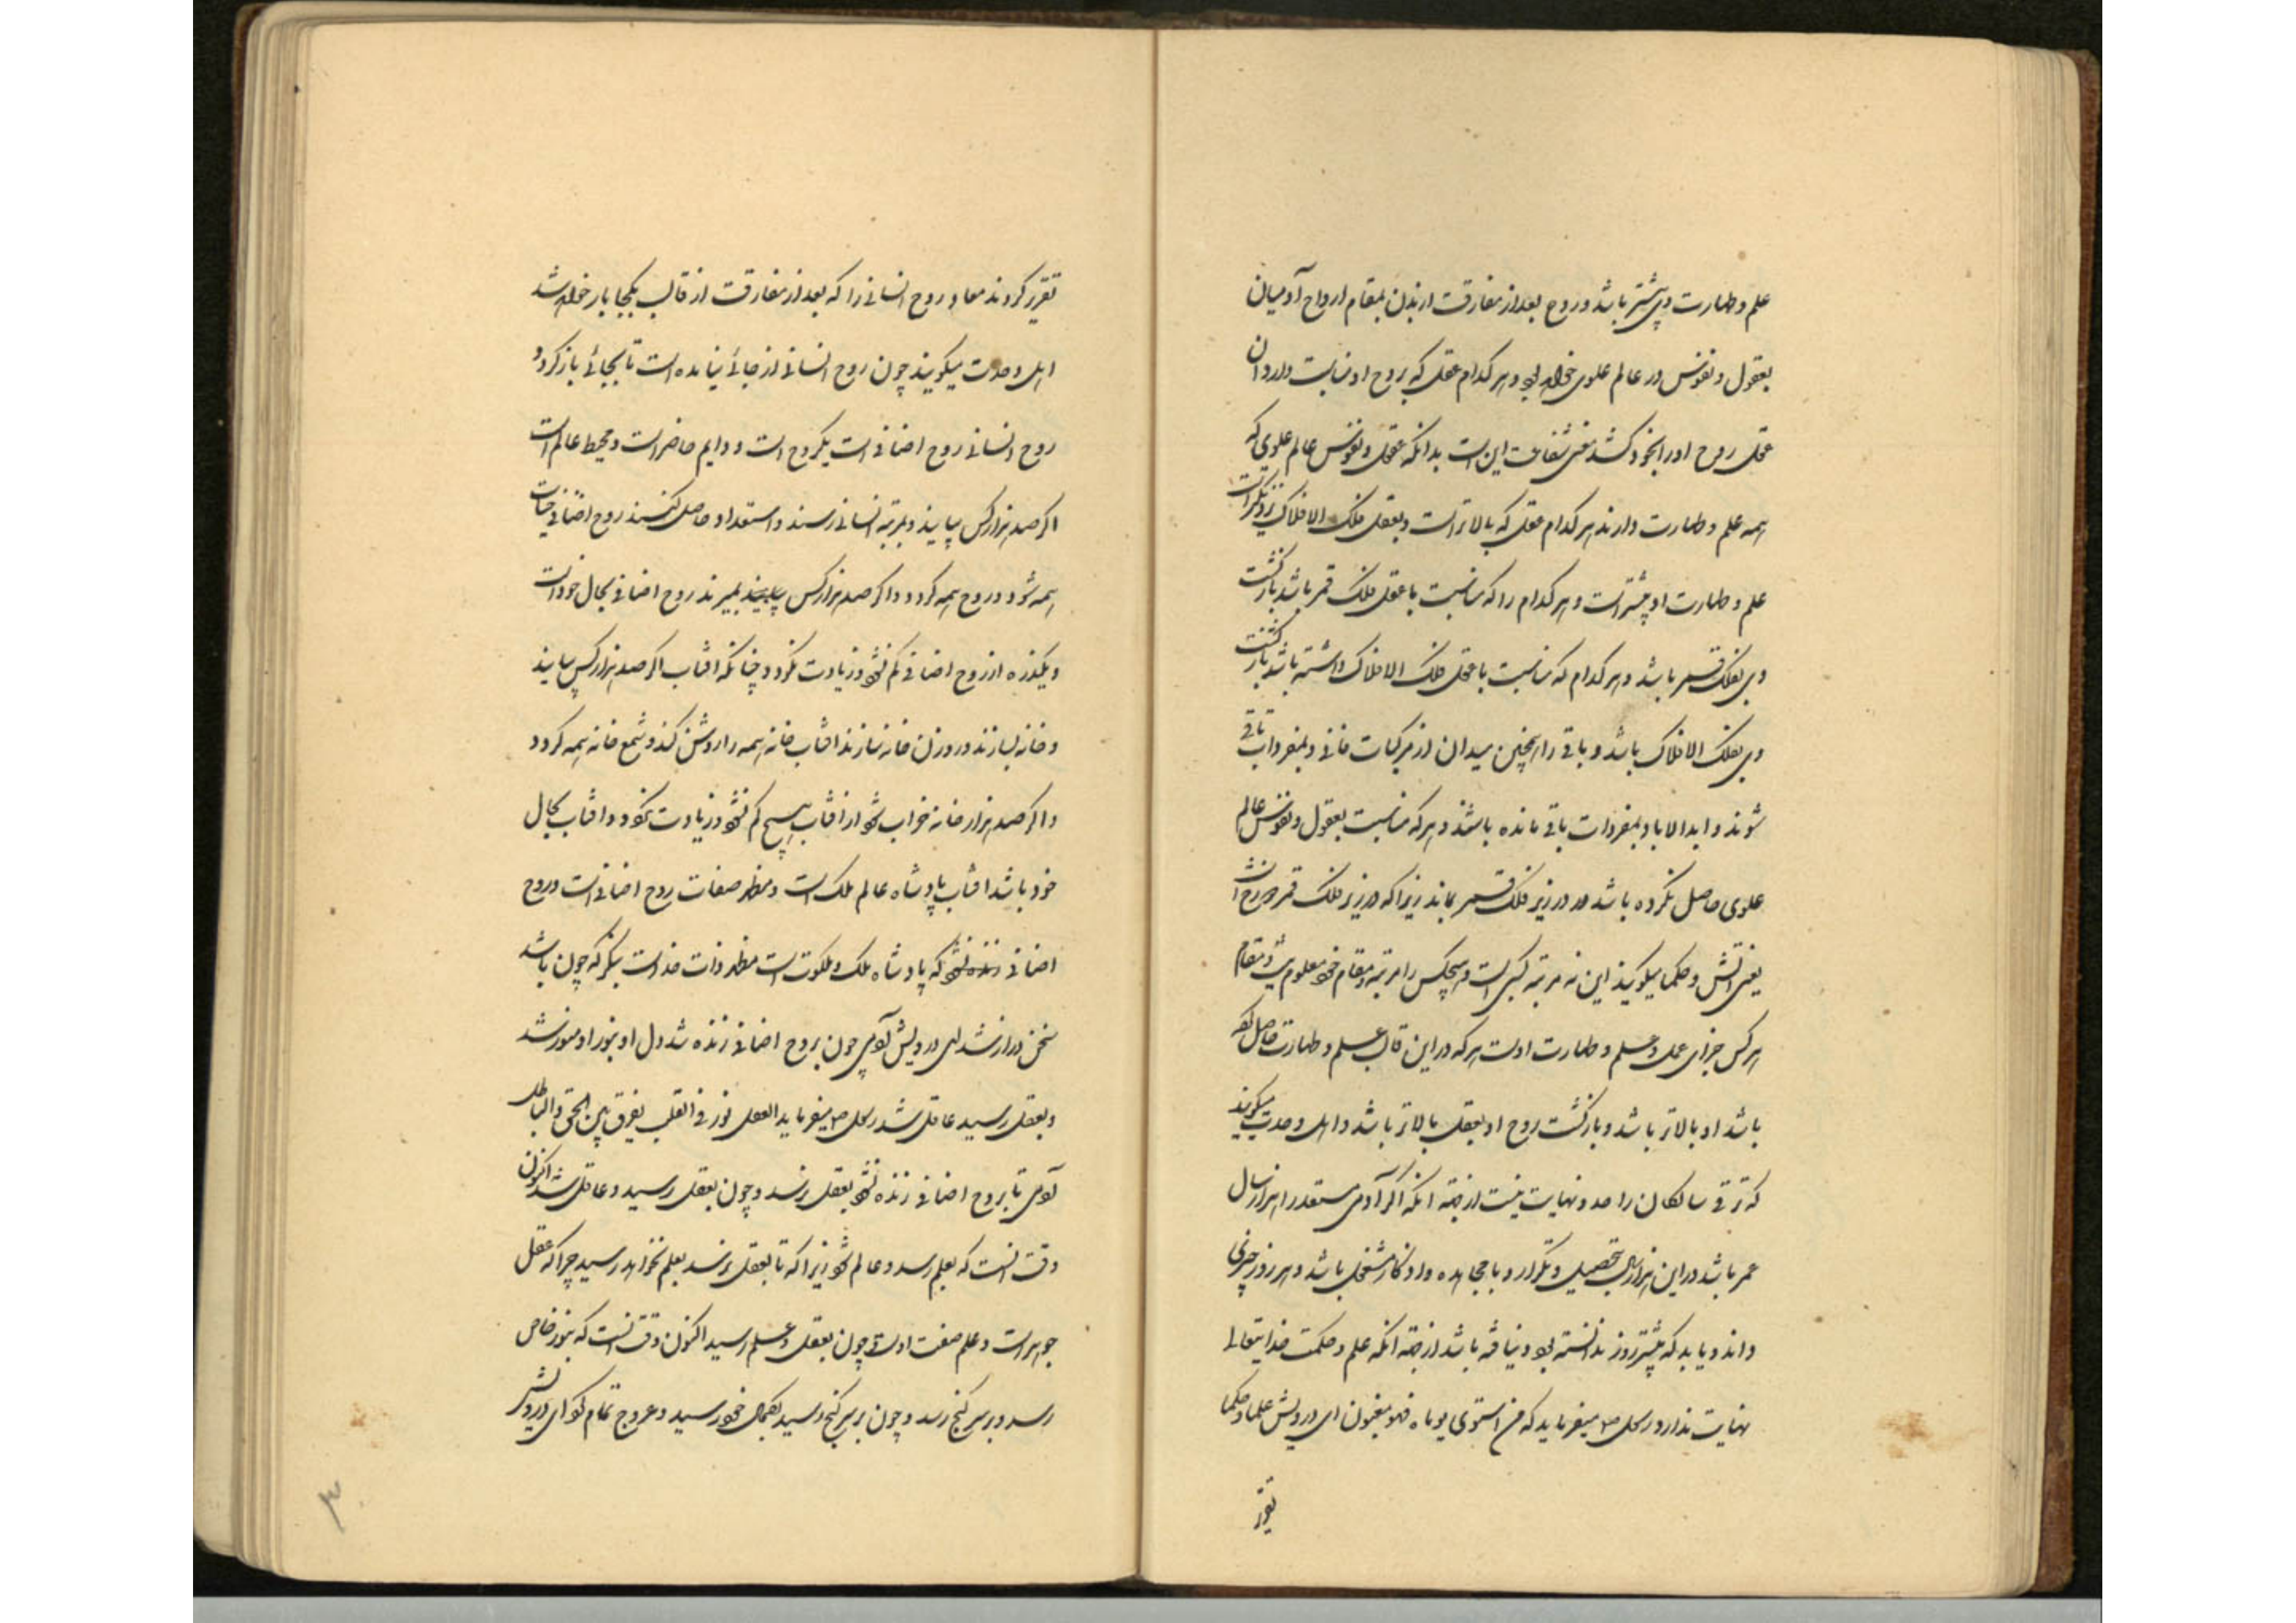 علم و طهارت وی بیشتر باشد و روح بعد از مفارقت از بدن بمقام ارواح آدمیان
بعقول و نفوس در عالم علوی خواهد بود و هر کدام عقل که بروح او مناسبت دارد آن
عقل روح او را بخود کشد معنی شفاعت این است بدانکه عقول و نفوس عالم علوی که
همه علم و طهارت دارند هر کدام عقل که بالاتر است و بعقل فلک الافلاک نزدیکتر است
علم و طهارت او بیشتر است و هر کدام را که مناسبت با عقل فلک قمر باشد بازگشت
وی بفلک قمر باشد و هر کدام که مناسبت با عقل فلک الافلاک داشته باشد بازگشت
وی بفلک الافلاک باشد و باقی را همچنین میدان از مرکبات فانی و بمفردات باقی
شوند و ابد الاباد بمفردات باقی مانده باشند و هر که مناسبت بعقول و نفوس عالم
علوی حاصل نکرده باشد در زیر فلک قمر بماند زیرا که در زیر فلک قمر دوزخ است
یعنی آتش و حکما میگویند این نه مرتبه کسبی است و هیچکس را مرتبه و مقام خود معلوم نیست و مقام
هر کس جزای عمل و علم و طهارت اوست هر که در این قالب علم و طهارت حاصل کرده
باشد او بالاتر باشد و بازگشت روح او بعقل بالاتر باشد و اهل وحدت میگویند
که ترقی سالکان را حد و نهایت نیست از جهة آنکه اگر آدمی مستعد را هزار سال
عمر باشد در این هزار سال بتحصیل و تکرار و با مجاهده و اذکار مشغول باشد و هر روز چیزی
داند و یابد که پیشتر روز ندانسته بود و نیافته باشد از جهة آنکه علم و حکمت خدایتعالی
نهایت ندارد رسول ص میفرماید که من استوی یوماه فهو مغبون ای درویش علما و حکما
تقریر
تقریر کردند معاد روح انسانی را که بعد از مفارقت از قالب بکجا باز خواهد شد
اهل وحدت میگویند چون روح انسانی از جائی نیامده است تا بجائی بازگردد
روح انسانی روح اضافی است یکروح است و دایم حاضر است و محیط عالم است
اگر صد هزار کس بیایند و بمرتبه انسانی رسند و استعداد حاصل کنند روح اضافی حیات
همه شود و روح همه گردد و اگر صد هزار کس بمیرند روح اضافی بحال خود است
و یکذره از روح اضافی کم نشود و زیادت نگردد چنانکه افتاب اگر صد هزار کس بیایند
و خانه بسازند و روزن خانه بسازند افتاب خانه همه را روشن کند و شمع خانه همه گردد
و اگر صد هزار خانه خراب شود از افتاب هیچ کم نشود و زیادت نگردد و افتاب بحال
خود باشد افتاب پادشاه عالم ملک است و مظهر صفات روح اضافی است و روح
اضافی که پادشاه ملک و ملکوت است مظهر ذات خداست بنگر که چون باشد
سخن دراز شد ای درویش آدمی چون بروح اضافی زنده شد دل او بنور او منور شد
و بعقل رسید عاقل شد رسول ص میفرماید العقل نور فی القلب یفرق بین الحق و الباطل
آدمی تا بروح اضافی زنده نشود بعقل نرسد و چون بعقل رسید و عاقل شد اکنون
وقت آنست که بعلم رسد و عالم شود زیرا که تا بعقل نرسد بعلم نخواهد رسید چرا که عقل
جوهر است و علم صفت اوست چون بعقل و علم رسید اکنون وقت آنست که بنور خاص
رسد و بر سر گنج رسد و چون بر سر گنج رسید بکمال خود رسید و عروج تمام کرد ای درویش